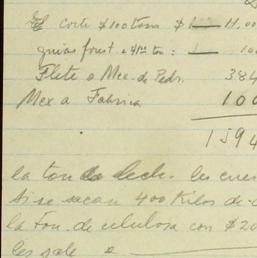 El corte $100 ton $ 11,00
guias forest a 41 ton: 10
Flete a Mex. de Pedr. 384
Mex a Fabrica 100
1594
la ton de lech. les cues
Si se sacan 400 Kilos de
la Ton. de celulosa con $20
les sale a